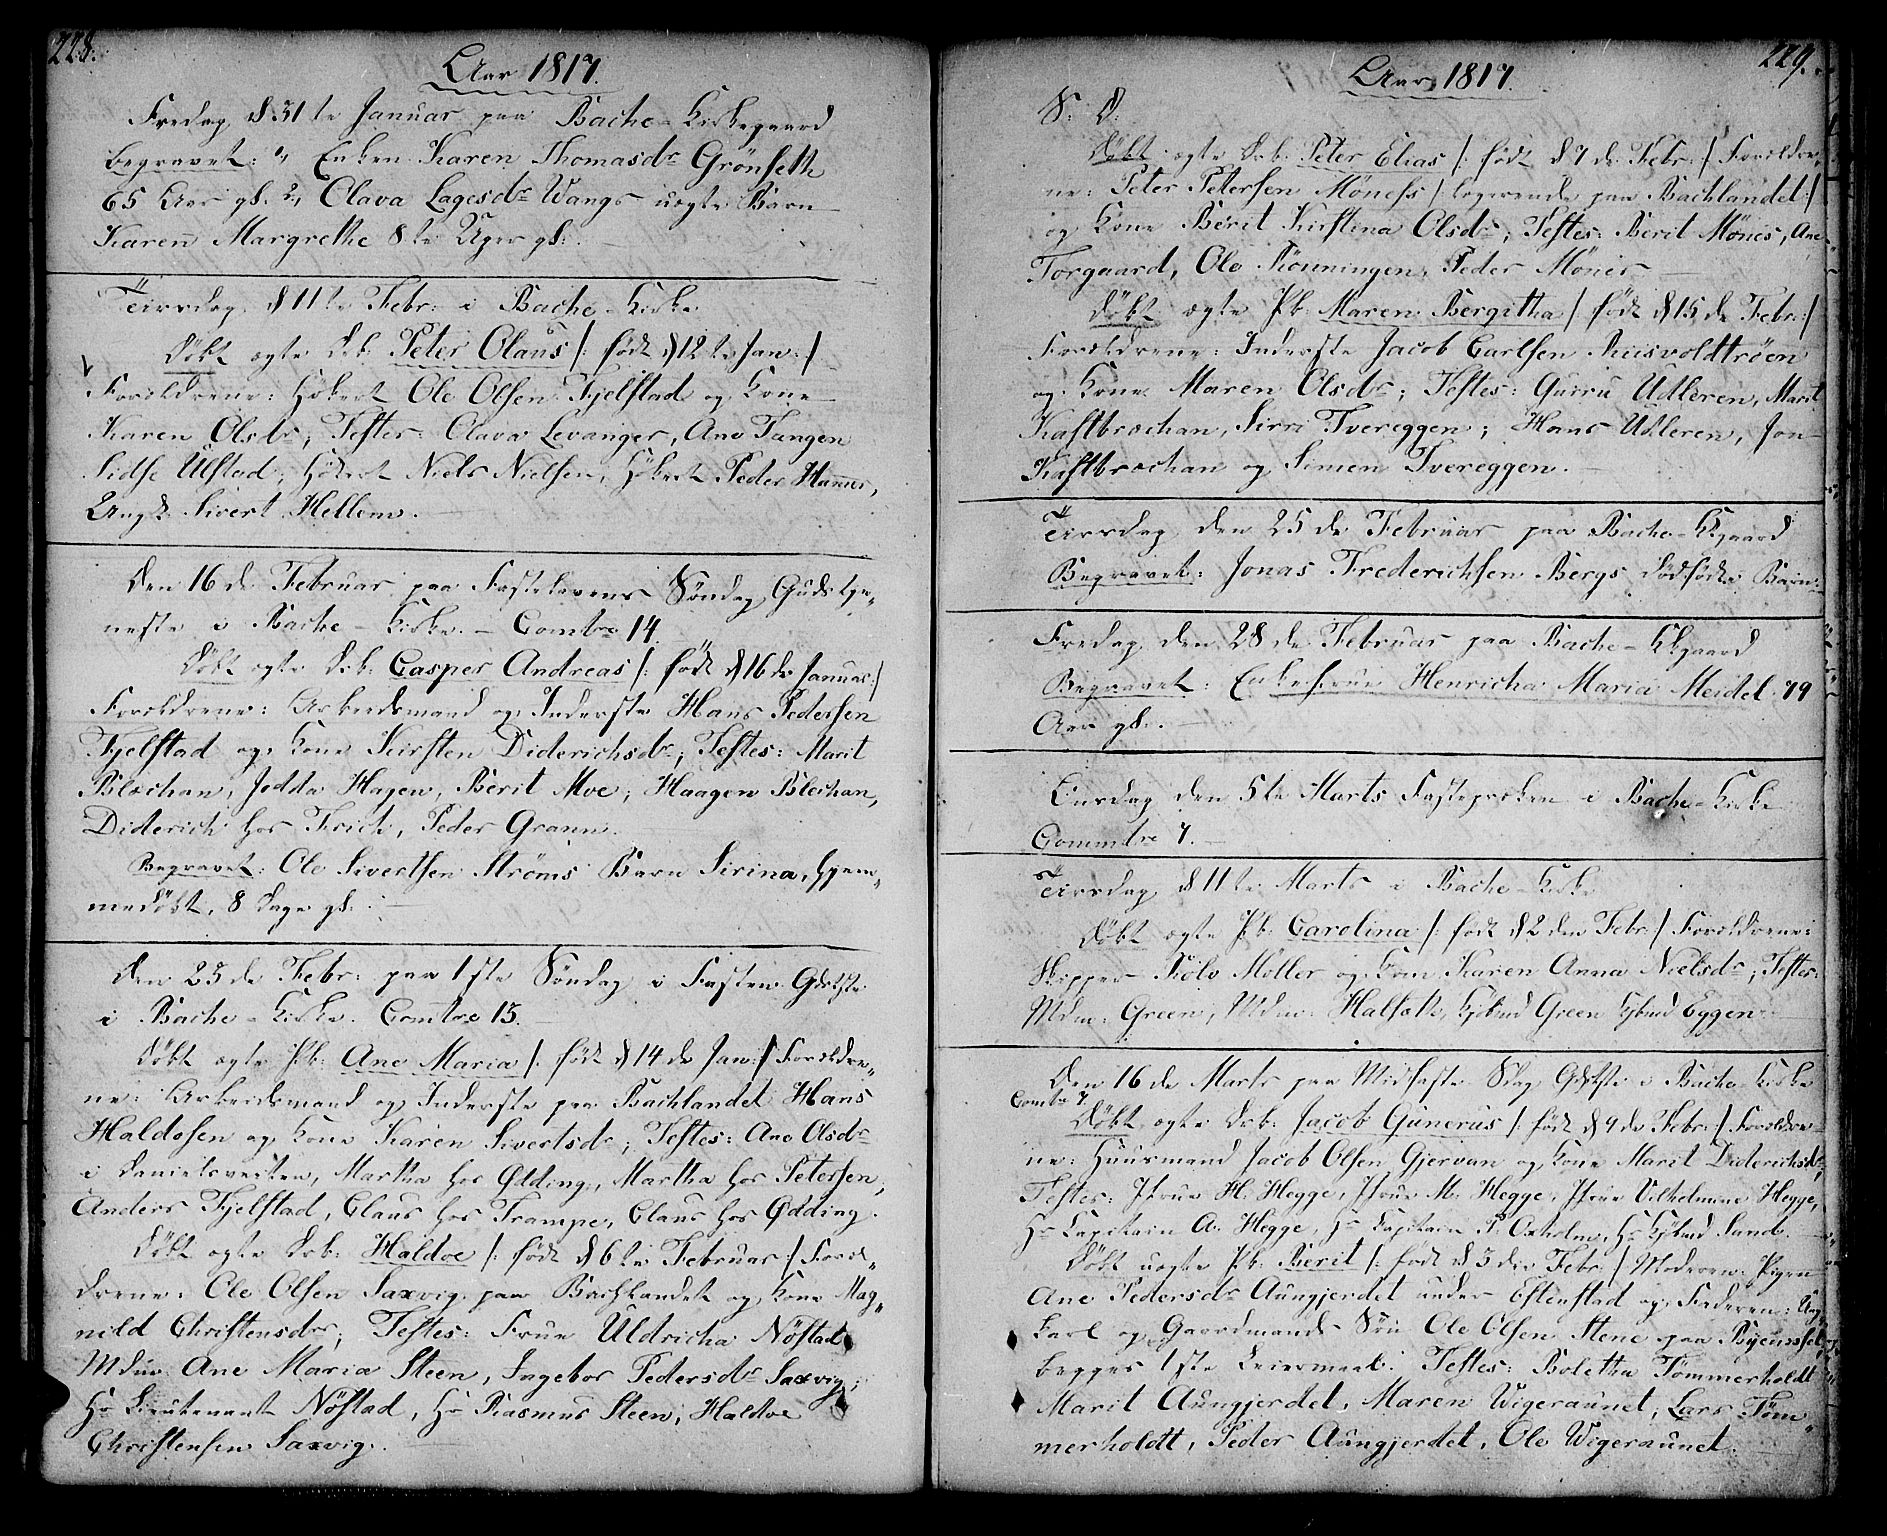 228.
Aar 1817.
Fredag d 31te Januar paa Bache-Kirkegaard
begravet: 1, Enken Karen Thomasdr Grönseth
65 Aar gl. 2, Olava Lagesdr Wangs uægte Barn
Karen Margrethe 8te Uger gl.
Tiirsdag d 11te Febr: i Bache-Kirke
Döbt ægte Drb: Peter Olaus /: födt d 12te Jan: /
Forældrene: Hökert Ole Olsen Fjelstad og Kone
Karen Olsdr; Testes: Olava Levanger, Ane Tangen
Sidse Ulstad; Hökert Niels Nielsen, Hökert Peder Hammer,
Ungk. Sivert Hellem.
Den 16de Februar paa Fastelavens Söndag Gudstje„
neste i Bache-Kirke. Comtre 14.
Döbt ægte Drb: Casper Andreas /: födt d 16de Januar: /
Forældrene: Arbeidsmand og Inderste Hans Pedersen
Fjelstad og Kone Kirsten Diderichsdr; Testes: Marit
Blæchan, Jedda Hagen, Berit Moe; Haagen Blechan,
Diderich hos Frich, Peder Grann.
Begravet: Ole Sivertsen Ströms Barn Sirina, hjem„
medöbt, 8 Dage gl.
Den 23de Febr: paa 1ste Söndag i Fasten Gdstste
i Bache-Kirke. Comtre 13.
Döbt ægte Pb: Ane Maria /: födt d 14de Jan: / Forældre„
ne: Arbeidsmand og Inderste paa Bachlandet Hans
Haldosen og Kone Karen Sivertsdr; Testes: Ane Olsdr
i Danielsveiten, Martha hos Ödding, Martha hos Petersen,
Anders Fjelstad, Claus hos Trampe, Claus hos Ödding.
Döbt ægte Drb: Haldoe /: födt d 6te Februar: / Foræl„
drene: Ole Olsen Saxvig paa Bachlandet og Kone Mag„
nild Christensdr; Testes: Frue Uldricha Nöstad
Mdme Ane Maria Steen, Ingebor Pedersdr Saxvig;
Hr Lieutenant Nöstad, Hr Rasmus Steen, Haldoe
Christensen Saxvig.
229.
Aar 1817.
S: D:
Döbt ægte Drb: Peter Elias /: födt d 7de Febr: / Forældre„
ne: Peter Petersen Mönchs / logerende paa Bachlandet: /
og Kone Berit Kirstina Olsdr; Testes: Berit Mönis, Ane
Torgaard, Ole Rönningen, Peder Mönis
Döbt ægte Pb: Maren Bergitha / födt d 15de Febr: /
Forældrene: Inderste Jacob Carlsen Ruisvoldtröen
og Kone Maren Olsdr; Testes: Gurru Udleren, Marit
Kastbrochan, Sirri Tvereggen; Hans Udleren, Jon
Kastbrochan og Simen Tvereggen.
Tiirsdag den 25de Februar paa Bache-Kkgaard
Begravet: Jonas Frederichsen Bergs dödfödte Barn
Fredag den 28de Februar paa Bache-Kkgaard
Begravet: Enkefrue Henricha Maria Meidel 79
Aar gl.
Onsdag den 5te Marts Fasteprøken i Bache-Kirke
Commtre 7.
Tiirsdag d 11te Marts i Bache-Kirke
Döbt ægte Pb: Carolina /: födt d 2den Febr: / Forældrene:
Skipper Rolv Möller og Kone Karen Anna Nielsdr; Testes:
Mdme: Green, Mdme: Halseth, Kjöbmd Green Kjbmd Eggen
Den 16de Marts paa Midfaste Sdag Gdstste i Bache-Kirke
Comtre 7.
Döbt ægte Drb: Jacob Gunerus /: födt d 9de Febr: / Forældre
ne: Huusmand Jacob Olsen Gjervan og Kone Marit Diderichsdr;
Testes: Jfrue H. Hegge, Jfrue M. Hegge, Jfrue Vilhelmene Hegge,
Hr Capitain A. Hegge, Hr Capitain P. Oxholm, Hr Kjöbmd Sand.
Döbt uægte Pb: Berit /: födt d 3die Febr: / Moderen: Pigen
Ane Pedersdr Aungjerdet under Estenstad og Faderen: Ung
Karl og Gaardmands Sön Ole Olsen Stene paa Byeneset
begges 1ste Leiermaal. Testes: Boletha Tömmerholdt
Marit Aungjerdet, Maren Wigeraunet, Lars Töm„
merholdt, Peder Aungjerdet, Ole Wigeraunet.